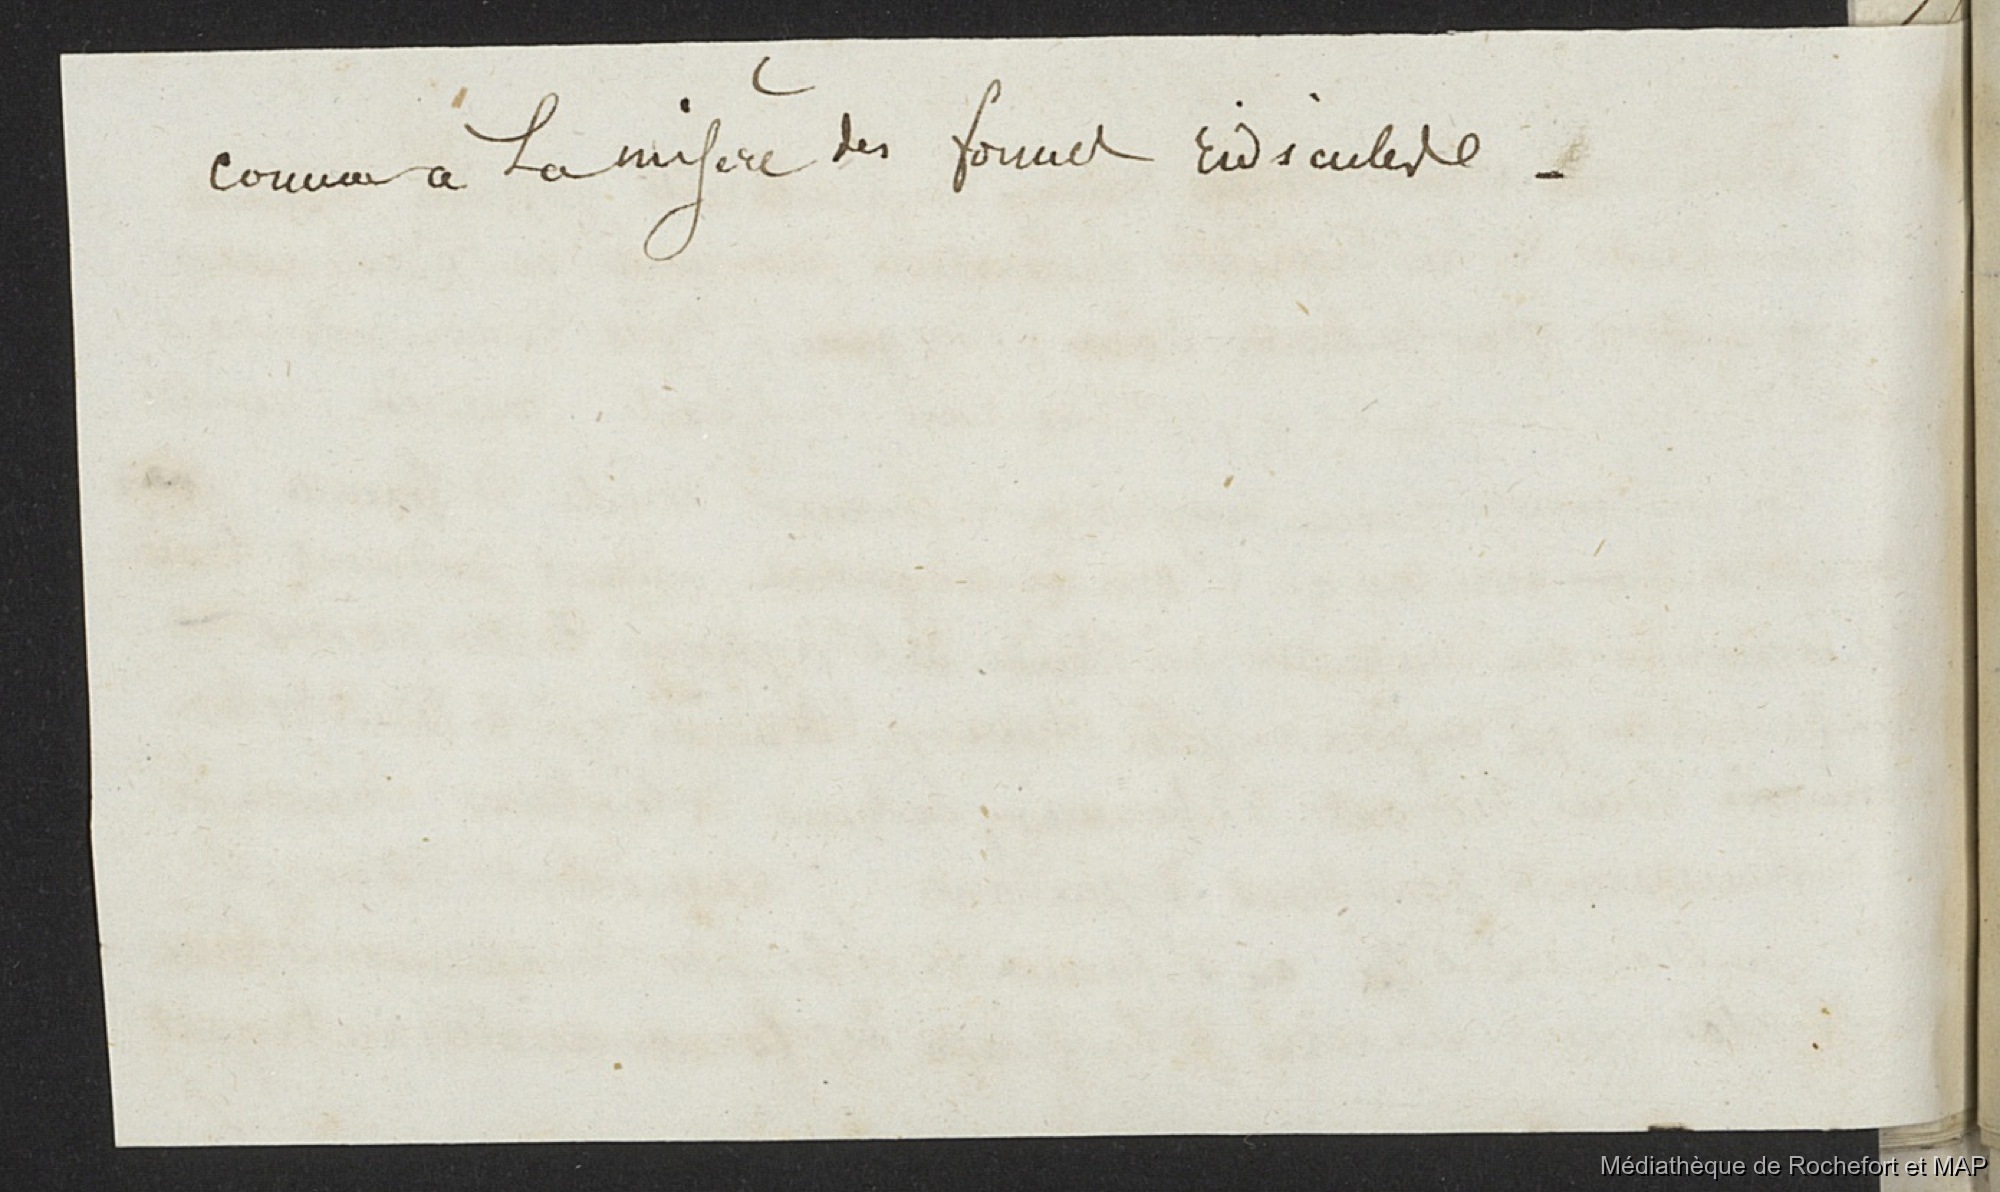 comme a La misere des formes ridicules de
Médiathèque de Rochefort et MAP